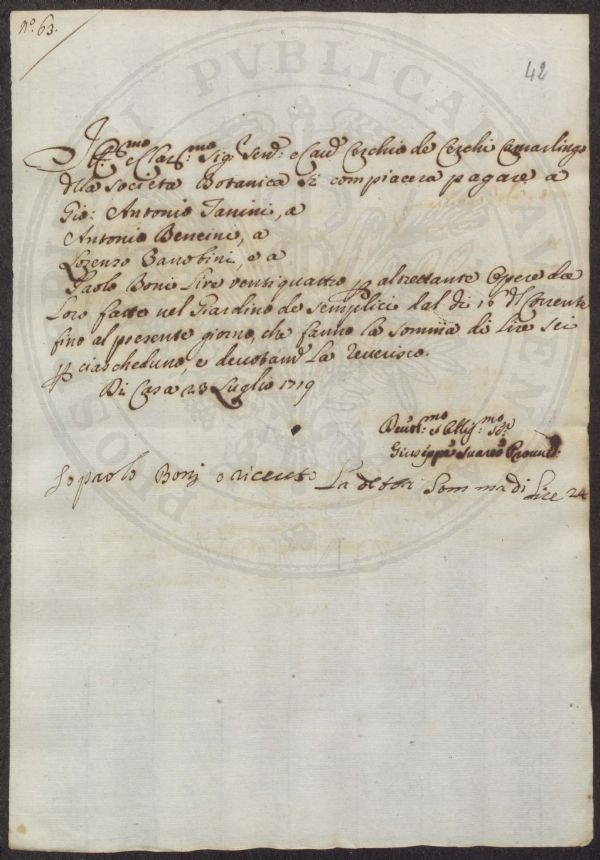 n.º 63.
42
Ill.mo e Clar.mo Sig. Sen.e e Cav.e Cerchio de Cerchi Camarlingo
della Società Botanica si compiacerà pagare a
Gio: Antonio Tanini, a
Antonio Bencini, a
Lorenzo Zanobini, e a
Paolo Boni Lire ventiquattro p altrettante Opere da
Loro fatte nel Giardino de semplici dal di 10 d Corrente
fino al presente giorno, che fanno la somma di Lire sei
p ciascheduno, e devotam.e La reverisco.
Di Casa 23 Luglio 1719
Devot.mo e Obblig.mo Se.re
Giuseppe Suares
Io paolo Bonj o riceuto La detta Somma di Lire 24